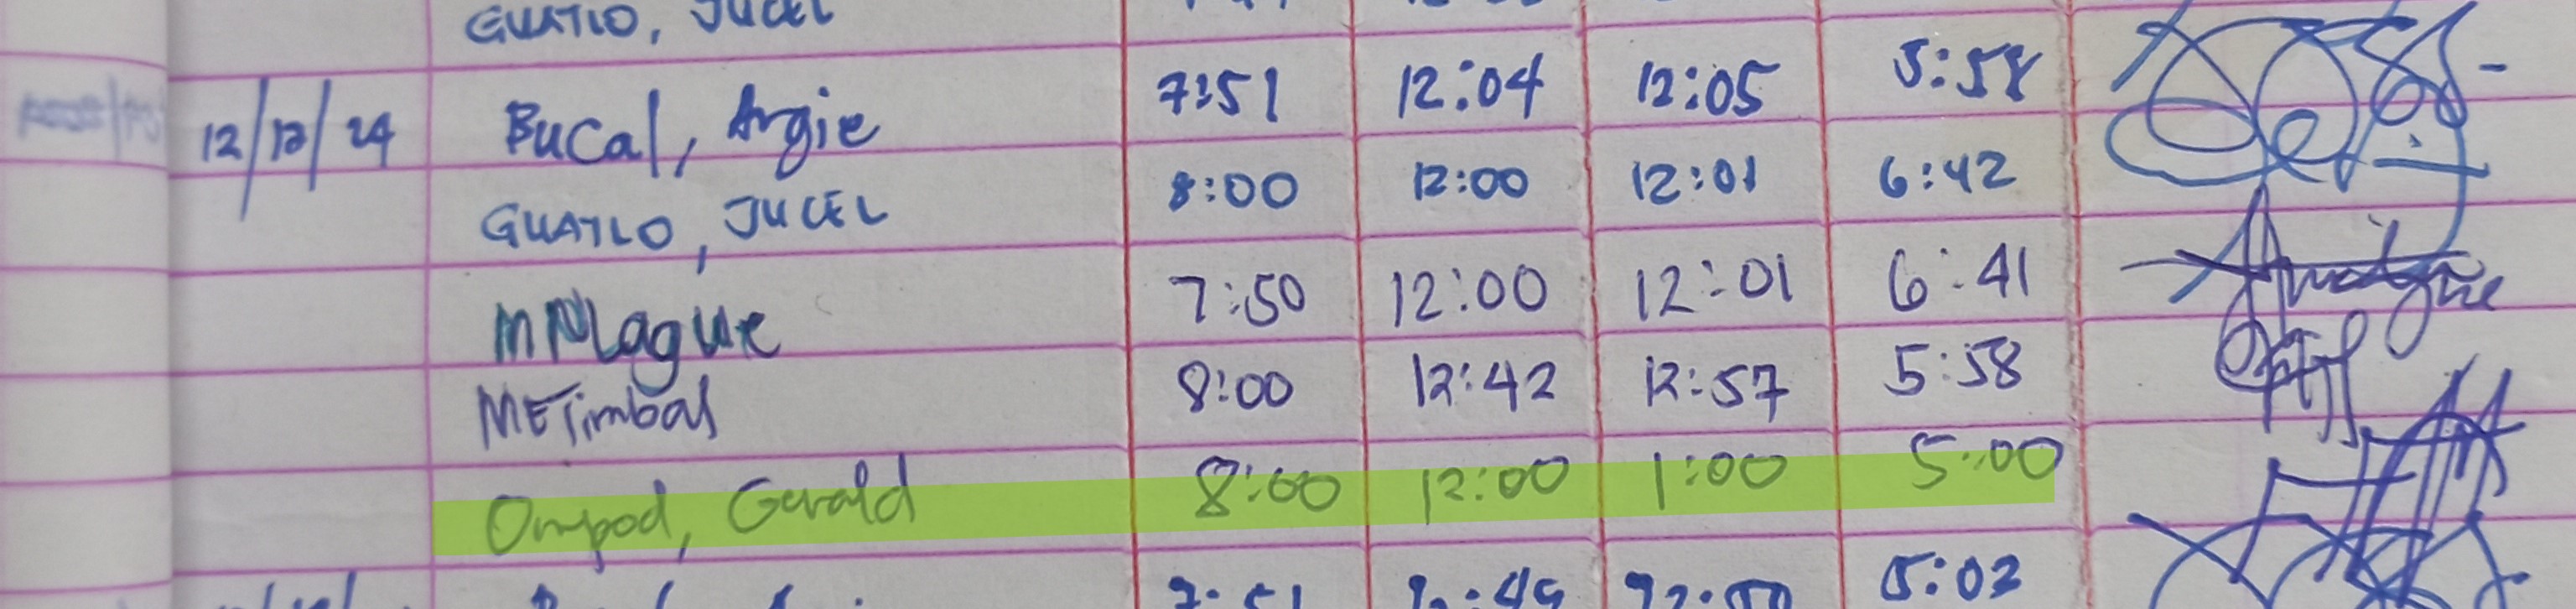 GUATLO, JUCEL
12/12/24 Bucal, Argie 7:51 12:04 12:05 5:58
GUATLO, JUCEL 8:00 12:00 12:01 6:42
MNLague 7:50 12:00 12:01 6:41
METimbal 8:00 12:42 12:57 5:58
Ompod, Gerald 8:00 12:00 1:00 5:00
7:51 5:02